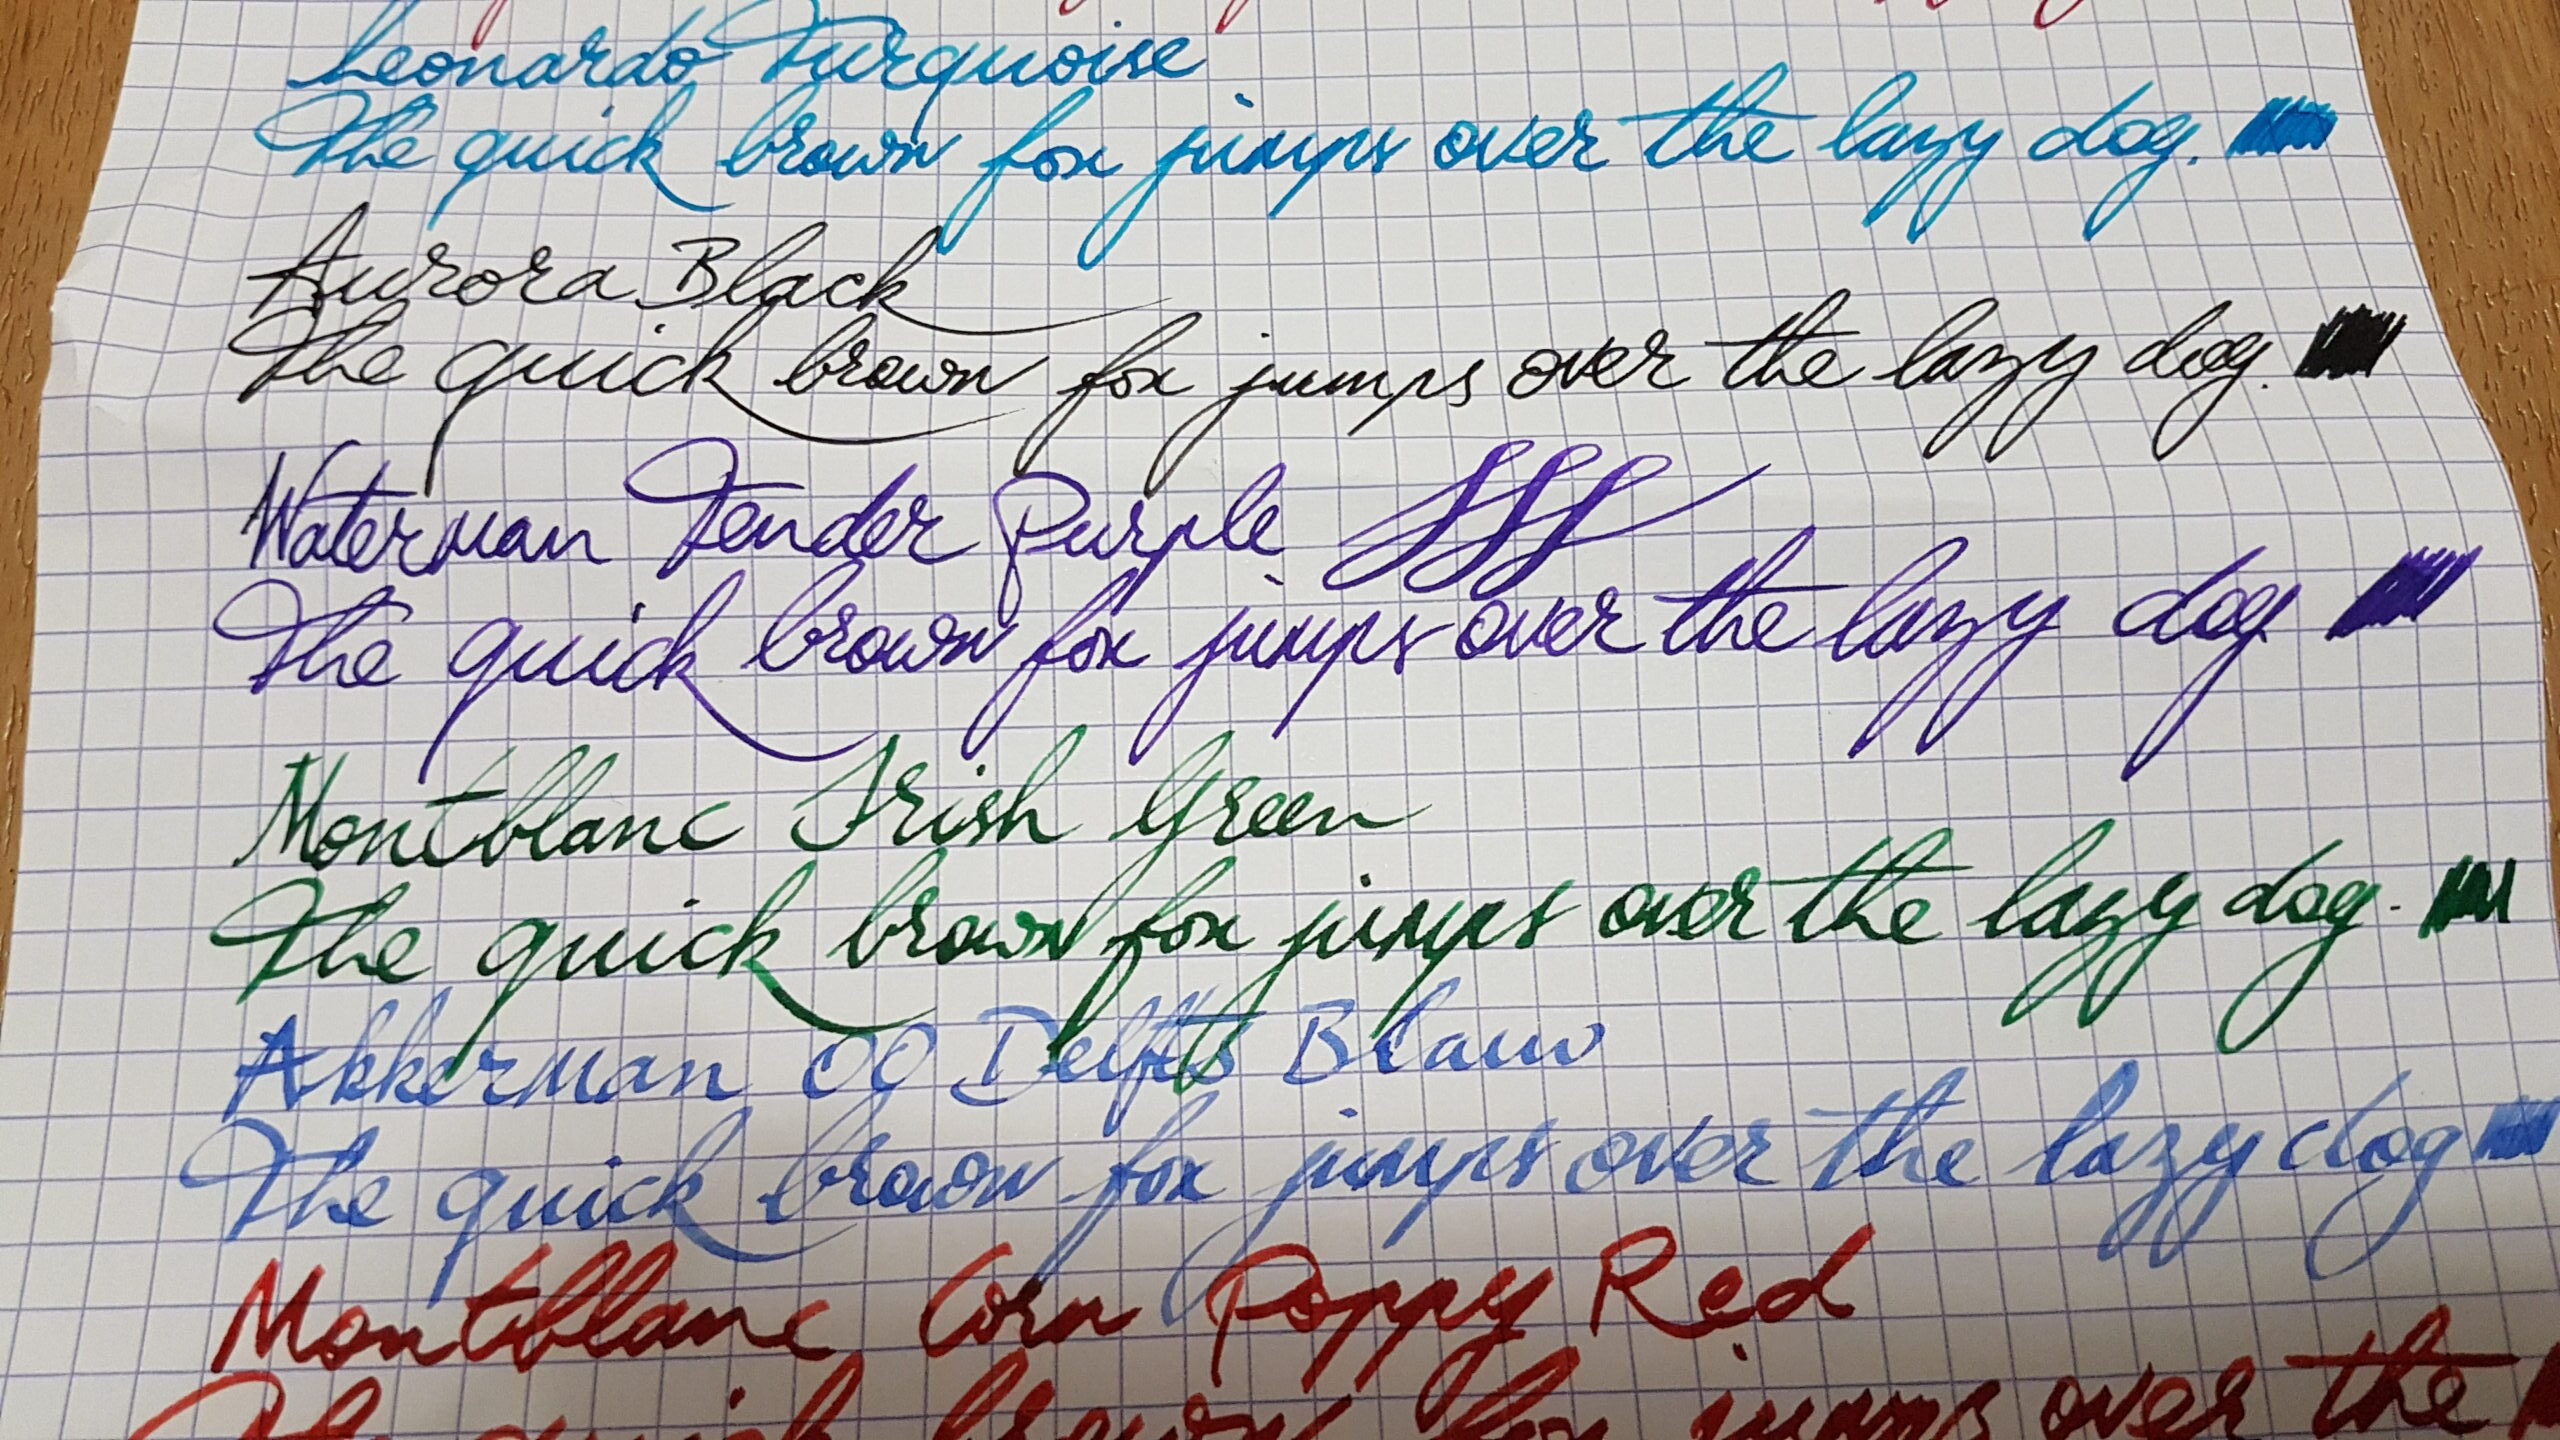 Leonardo Turquoise
The quick brown fox jumps over the lazy dog.
Aurora Black
The quick brown fox jumps over the lazy dog.
Waterman Tender Purple
The quick brown fox jumps over the lazy dog
Montblanc Irish Green
The quick brown fox jumps over the lazy dog.
Akkerman 00 Delfts Blauw
The quick brown fox jumps over the lazy dog
Montblanc Corn Poppy Red
The quick brown fox jumps over the